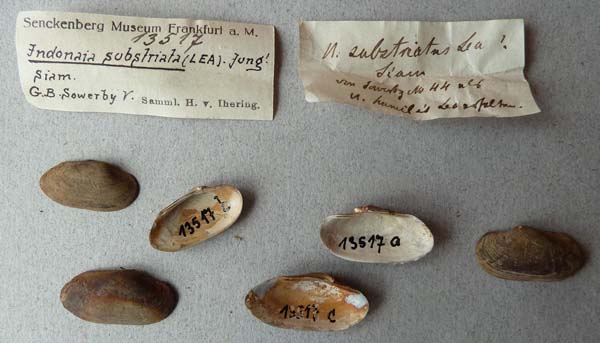 Senckenberg Museum Frankfurt a. M.
13517
Indonaia substriata (LEA). Jung!
Siam.
G.B. Sowerby V. Samml. H. v. Ihering.
U. substriatus Lea!
Siam
von Sowerby No 44 als
U. humilis Lea erhalten.
13517 b
13517 a
13517 c